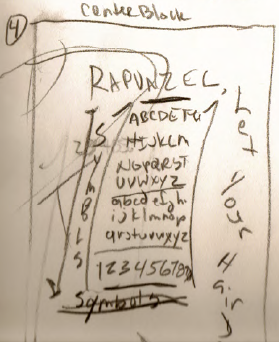 Center Block
4
RAPUNZEL,
Let Your Hair
ABCDEFG
HIJKLM
NOPQRST
UVWXYZ
abcdefgh
ijklmnop
qrstuvwxyz
1234567890
Symbols